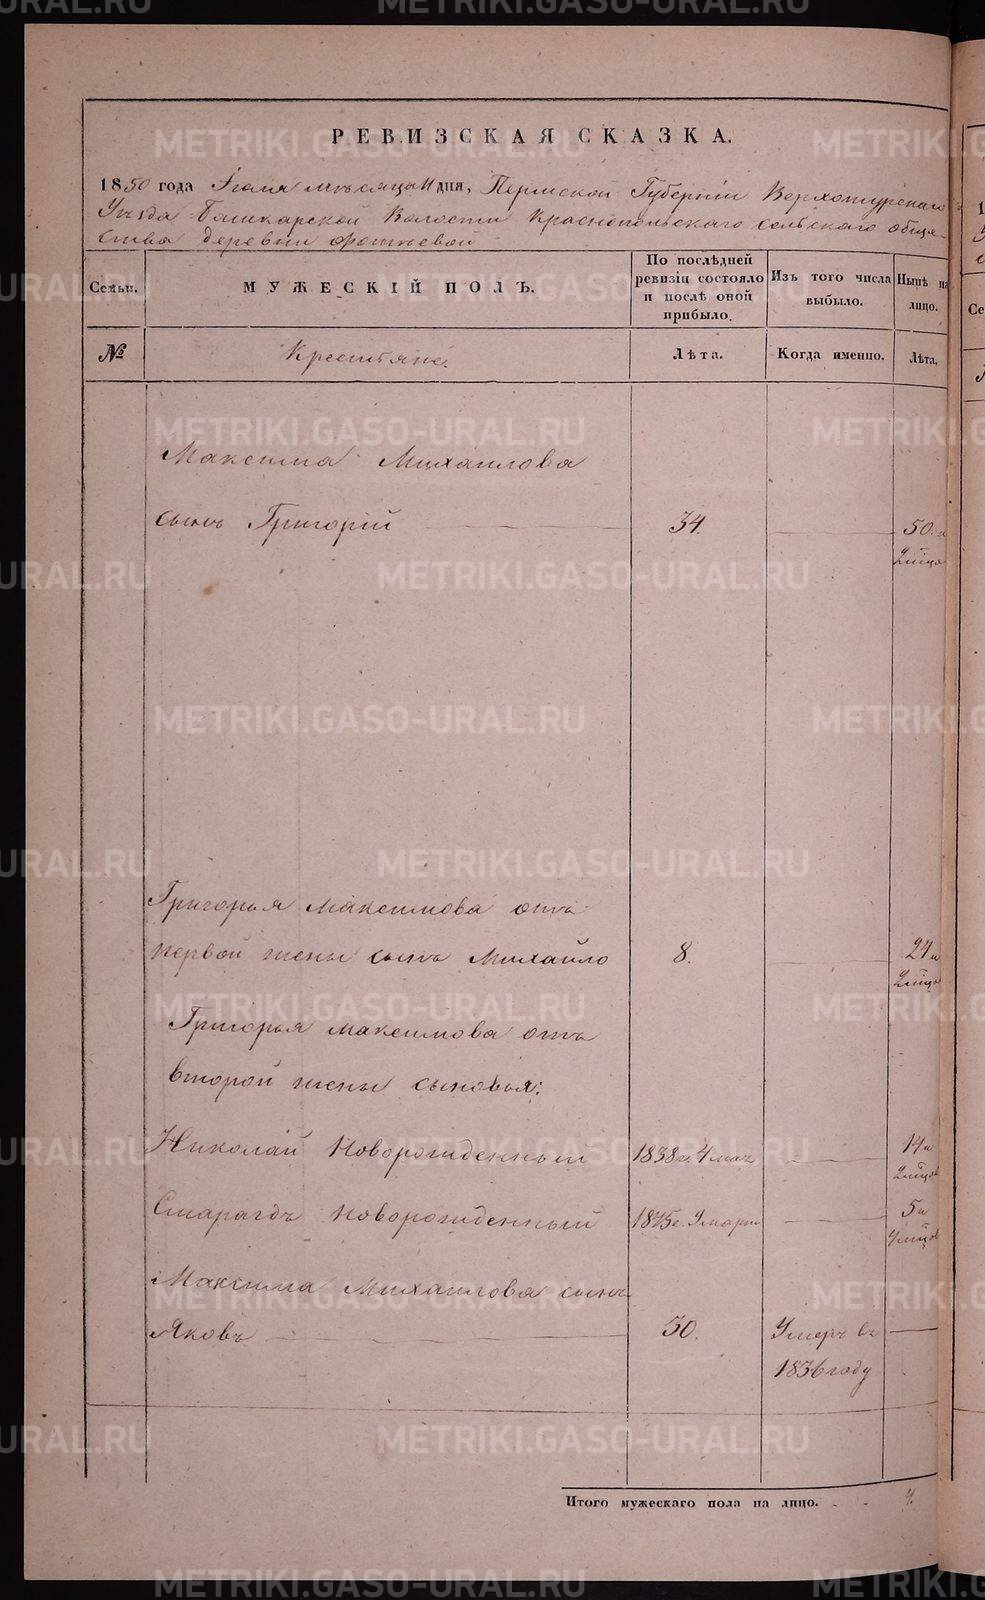 РЕВИЗСКАЯ СКАЗКА.
1850 года Іюля мѣсяца 11 дня, Пермской Губерніи Верхотурскаго
Уѣзда Башкарской Волости Краснопольскаго сельскаго обще-
ства деревни
Семьи.
МУЖЕСКІЙ ПОЛЪ.
По послѣдней ревизіи состояло и послѣ оной прибыло.
Изъ того числа выбыло.
Нынѣ на лицо.
№
Крестьяне.
Лѣта.
Когда именно.
Лѣта.
Максима Михаилова
сынъ Григорій 34. 50. и
Григорья Максимова отъ
первой жены сынъ Михайло 8. 24 и
Григорья Максимова отъ
второй жены сыновья:
Николай Новорожденный 1838 г. 14 и
Смарагдъ Новорожденный 1845 г. 5 и
Максима Михаилова сынъ
Яковъ 30. Умеръ въ
1836 году
Итого мужескаго пола на лицо. 4.
METRIKI.GASO-URAL.RU